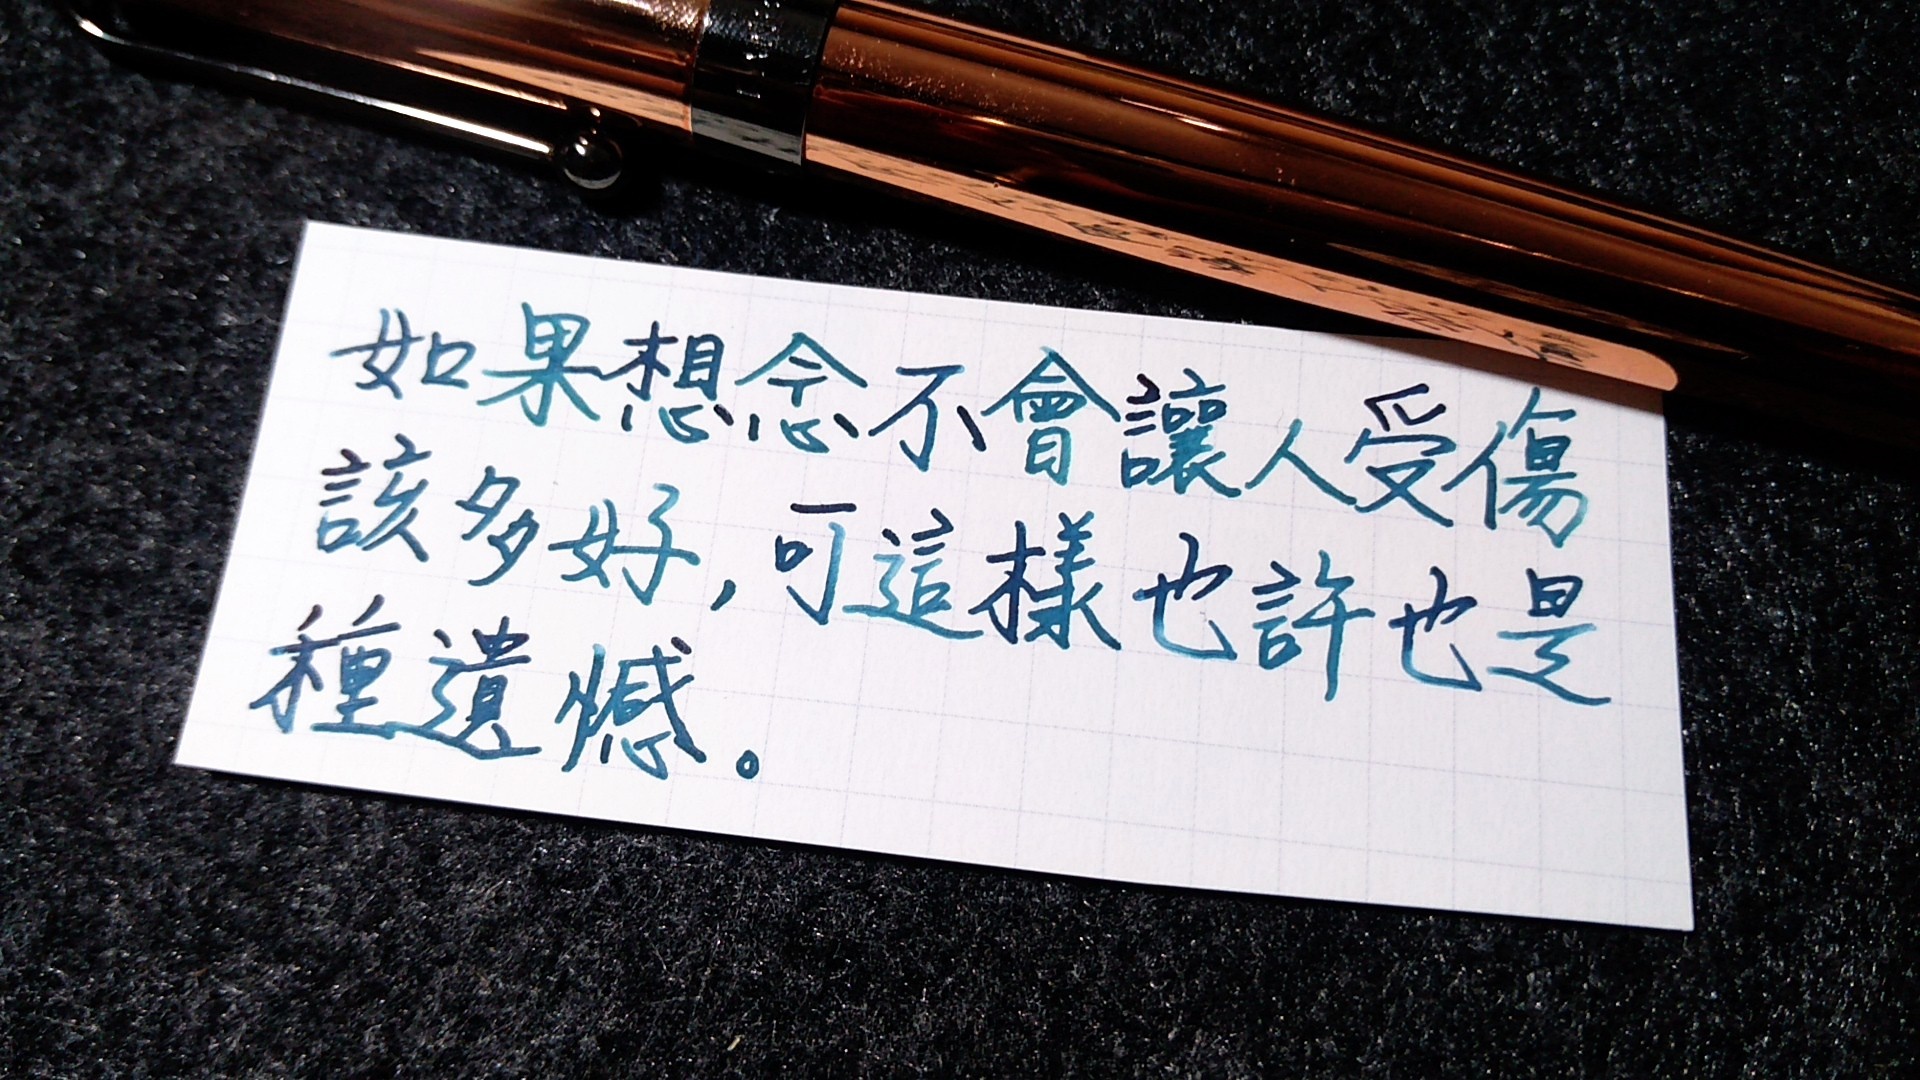 如果想念不會讓人受傷
該多好,可這樣也許也是
種遺憾。